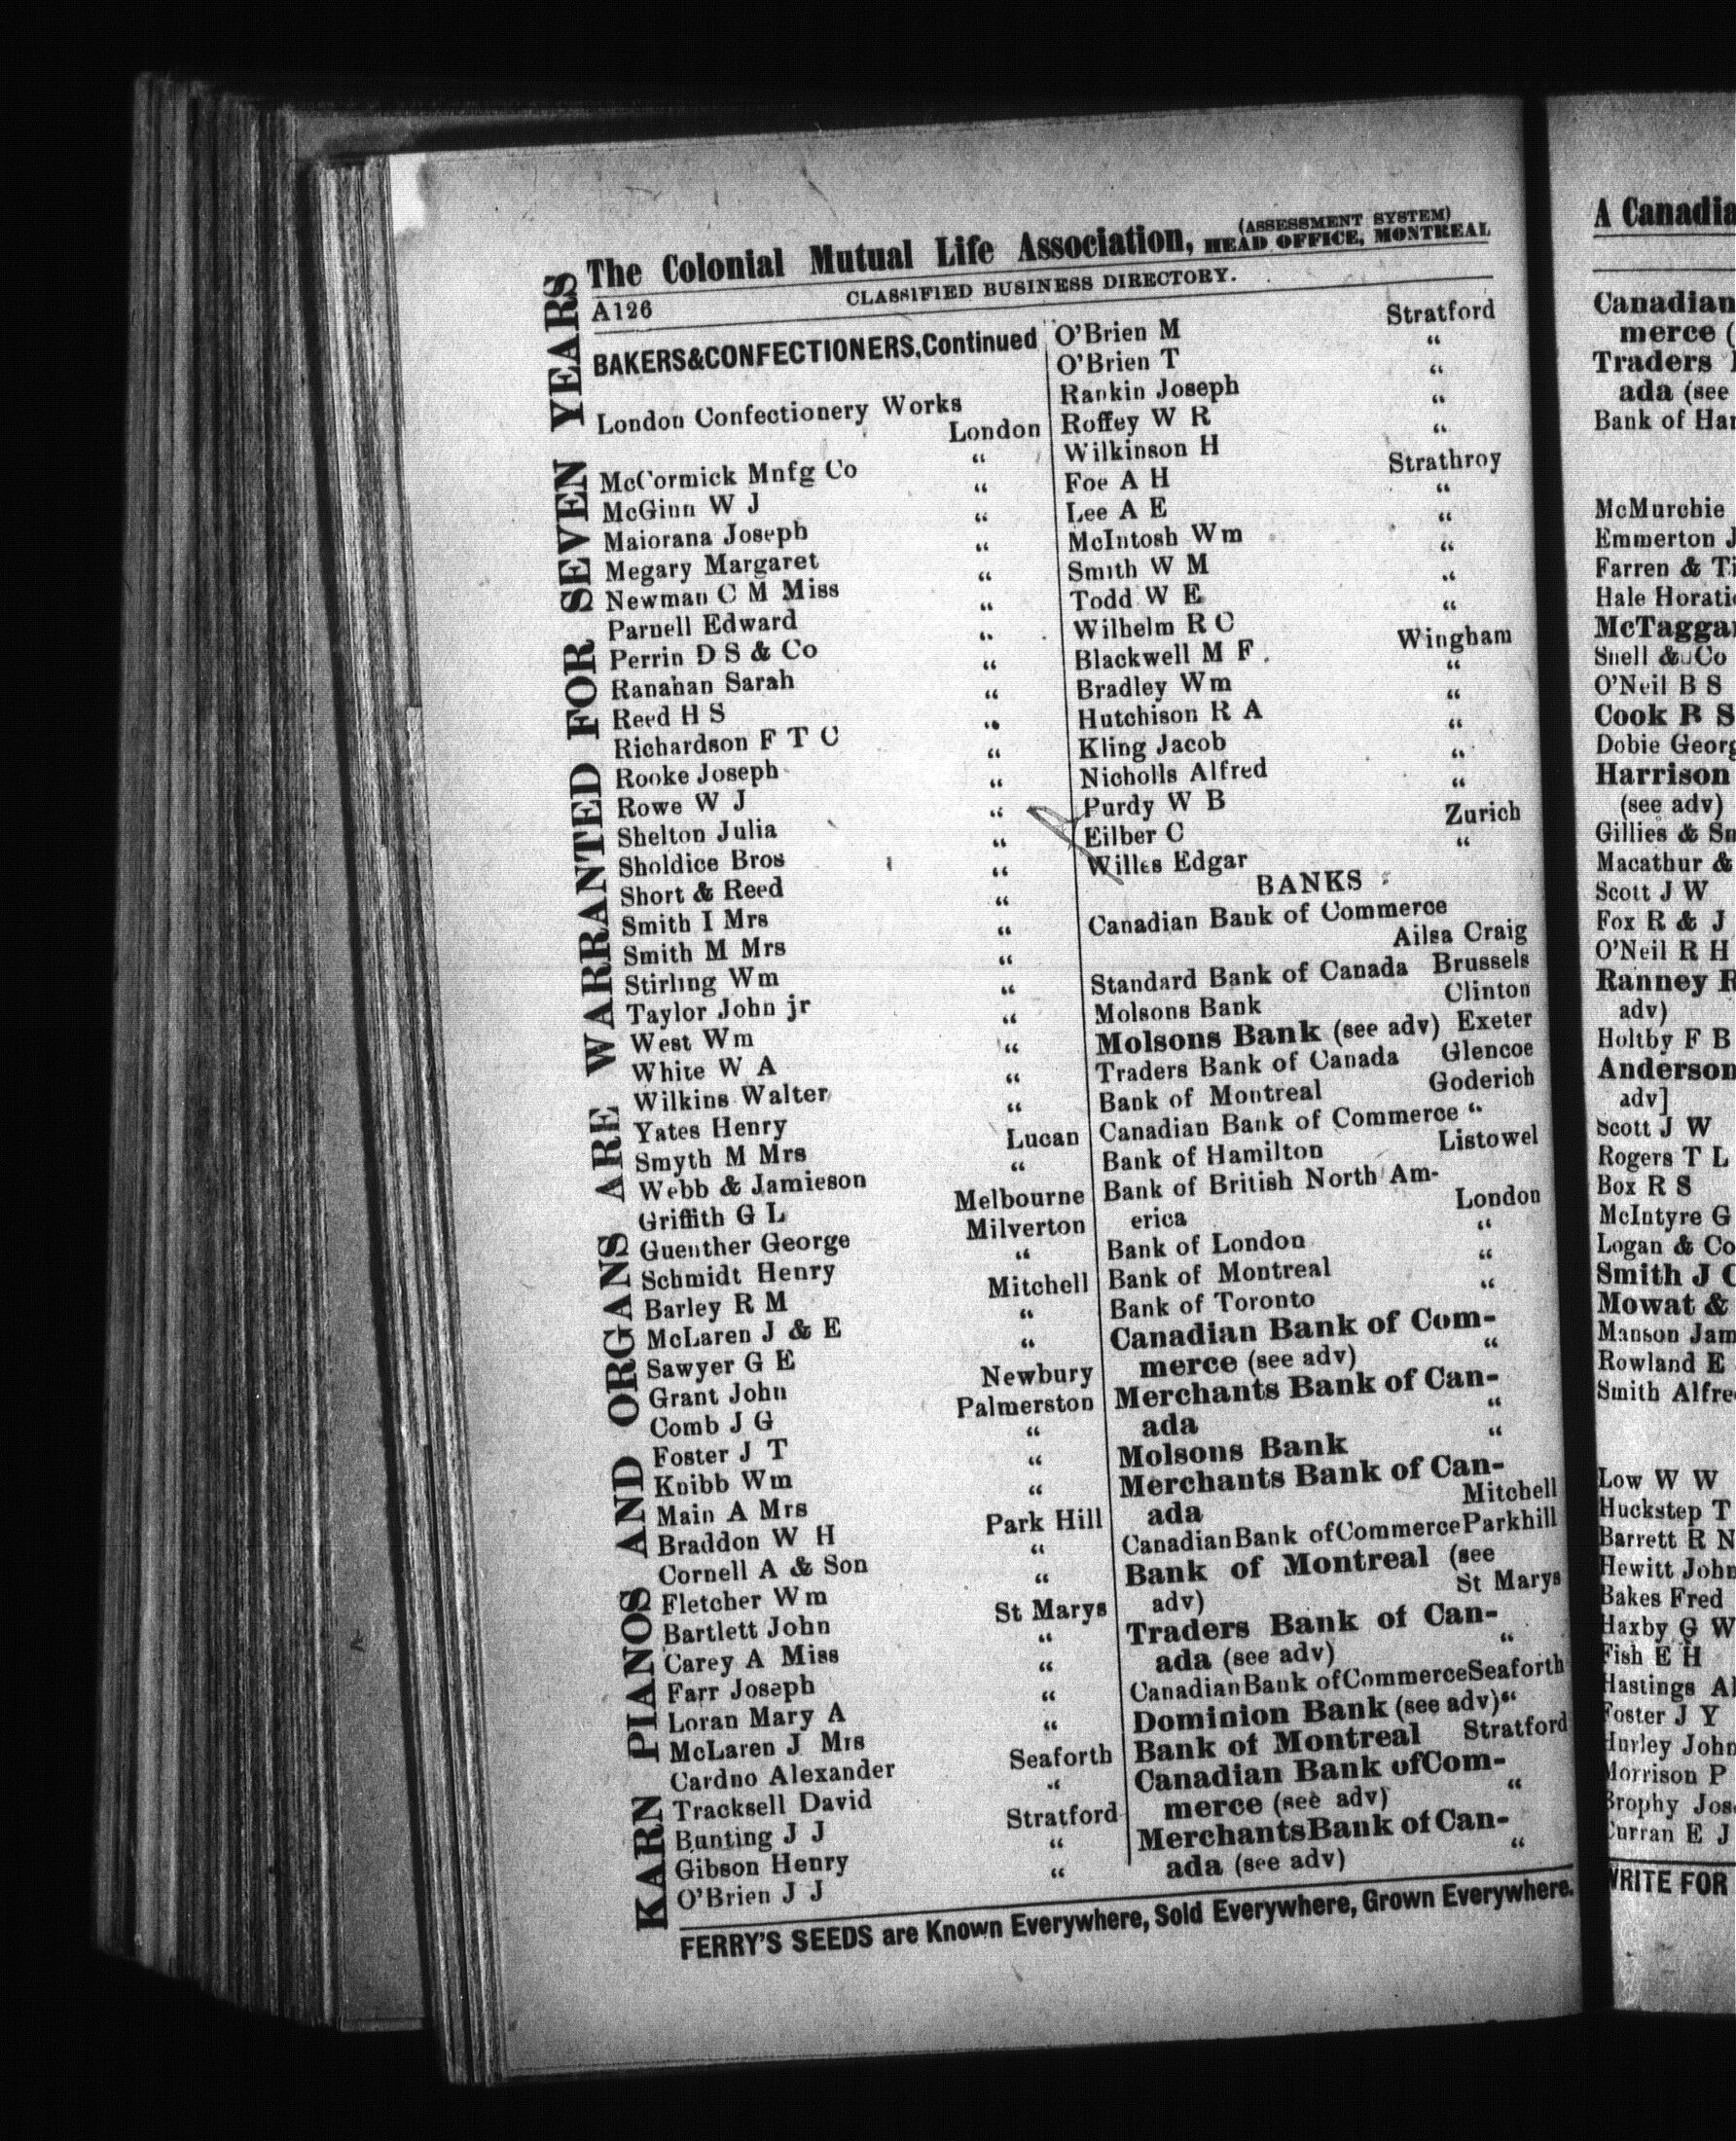 The Colonial Mutual Life Association, (ASSESSMENT SYSTEM) HEAD OFFICE, MONTREAL
A126 CLASSIFIED BUSINESS DIRECTORY.
BAKERS&CONFECTIONERS,Continued
London Confectionery Works
London
McCormick Mnfg Co “
McGinn W J “
Maiorana Joseph “
Megary Margaret “
Newman C M Miss “
Parnell Edward “
Perrin D S & Co “
Ranahan Sarah “
Reed H S “
Richardson F T C “
Rooke Joseph “
Rowe W J “
Shelton Julia “
Sholdice Bros “
Short & Reed “
Smith I Mrs “
Smith M Mrs “
Stirling Wm “
Taylor John jr “
West Wm “
White W A “
Wilkins Walter “
Yates Henry “
Smyth M Mrs Lucan
Webb & Jamieson “
Griffith G L Melbourne
Guenther George Milverton
Schmidt Henry “
Barley R M Mitchell
McLaren J & E “
Sawyer G E “
Grant John Newbury
Comb J G Palmerston
Foster J T “
Knibb Wm “
Main A Mrs “
Braddon W H Park Hill
Cornell A & Son “
Fletcher Wm “
Bartlett John St Marys
Carey A Miss “
Farr Joseph “
Loran Mary A “
McLaren J Mrs “
Cardno Alexander Seaforth
Tracksell David “
Bunting J J Stratford
Gibson Henry “
O'Brien J J “
O'Brien M Stratford
O'Brien T “
Rankin Joseph “
Roffey W R “
Wilkinson H “
Foe A H Strathroy
Lee A E “
McIntosh Wm “
Smith W M “
Todd W E “
Wilhelm R C “
Blackwell M F Wingham
Bradley Wm “
Hutchison R A “
Kling Jacob “
Nicholls Alfred “
Purdy W B “
Eilber C Zurich
Willes Edgar “
BANKS
Canadian Bank of Commerce
Ailsa Craig
Standard Bank of Canada Brussels
Molsons Bank Clinton
Molsons Bank (see adv) Exeter
Traders Bank of Canada Glencoe
Bank of Montreal Goderich
Canadian Bank of Commerce “
Bank of Hamilton Listowel
Bank of British North Am-
erica London
Bank of London “
Bank of Montreal “
Bank of Toronto “
Canadian Bank of Com-
merce (see adv) “
Merchants Bank of Can-
ada “
Molsons Bank “
Merchants Bank of Can-
ada Mitchell
Canadian Bank of Commerce Parkhill
Bank of Montreal (see
adv) St Marys
Traders Bank of Can-
ada (see adv) “
Canadian Bank of Commerce Seaforth
Dominion Bank (see adv) “
Bank of Montreal Stratford
Canadian Bank of Com-
merce (see adv) “
Merchants Bank of Can-
ada (see adv) “
FERRY'S SEEDS are Known Everywhere, Sold Everywhere, Grown Everywhere.
KARN PIANOS AND ORGANS ARE WARRANTED FOR SEVEN YEARS
A Canadia
Canadian
merce (
Traders
ada (see
Bank of Har
McMurchie
Emmerton J
Farren & Ti
Hale Horati
McTaggar
Snell & Co
O'Neil B S
Cook R S
Dobie Georg
Harrison
(see adv)
Gillies & Sm
Macathur &
Scott J W
Fox R & J
O'Neil R H
Ranney R
adv)
Holtby F B
Anderson
adv]
Scott J W
Rogers T L
Box R S
McIntyre G
Logan & Co
Smith J C
Mowat &
Manson Jam
Rowland E
Smith Alfre
Low W W
Huckstep T
Barrett R N
Hewitt John
Bakes Fred
Haxby G W
Fish E H
Hastings Al
Foster J Y
Hurley John
Morrison P
Brophy Jos
Curran E J
WRITE FOR